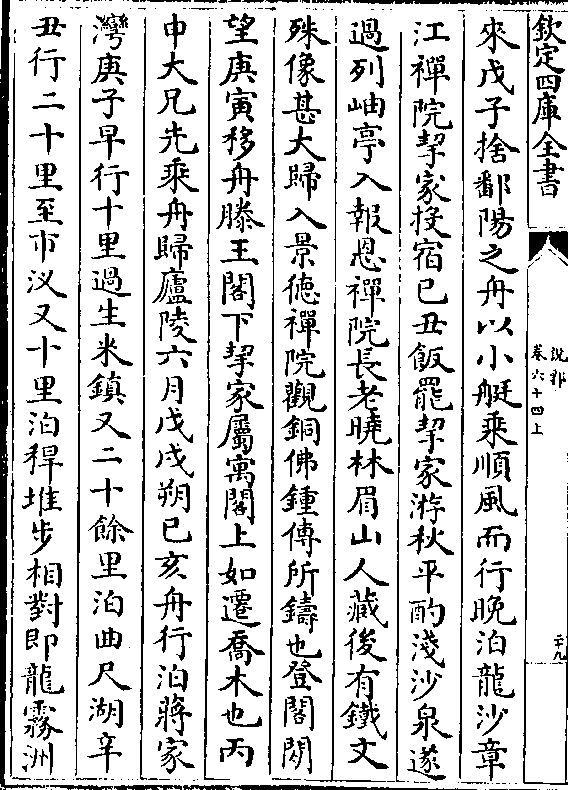 欽定四庫全書
說郛
卷六十四上
二十九
來戊子捨鄱陽之舟以小艇乘順風而行晚泊龍沙章
江禪院挈家投宿己丑飯罷挈家游秋平酌淺沙泉遂
過列岫亭入報恩禪院長老曉林眉山人藏後有鐵文
殊像甚大歸入景德禪院觀銅佛鍾傳所鑄也登閣閒
望庚寅移舟滕王閣下挈家屬寓閣上如遷喬木也丙
申大兄先乘舟歸廬陵六月戊戌朔己亥舟行泊蔣家
灣庚子早行十里過生米鎮又二十餘里泊曲尺湖辛
丑行二十里至市汊又十里泊稈堆步相對即龍霧洲